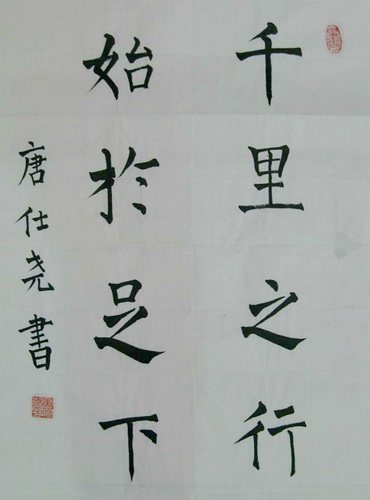 千里之行
始於足下
唐仕尧書